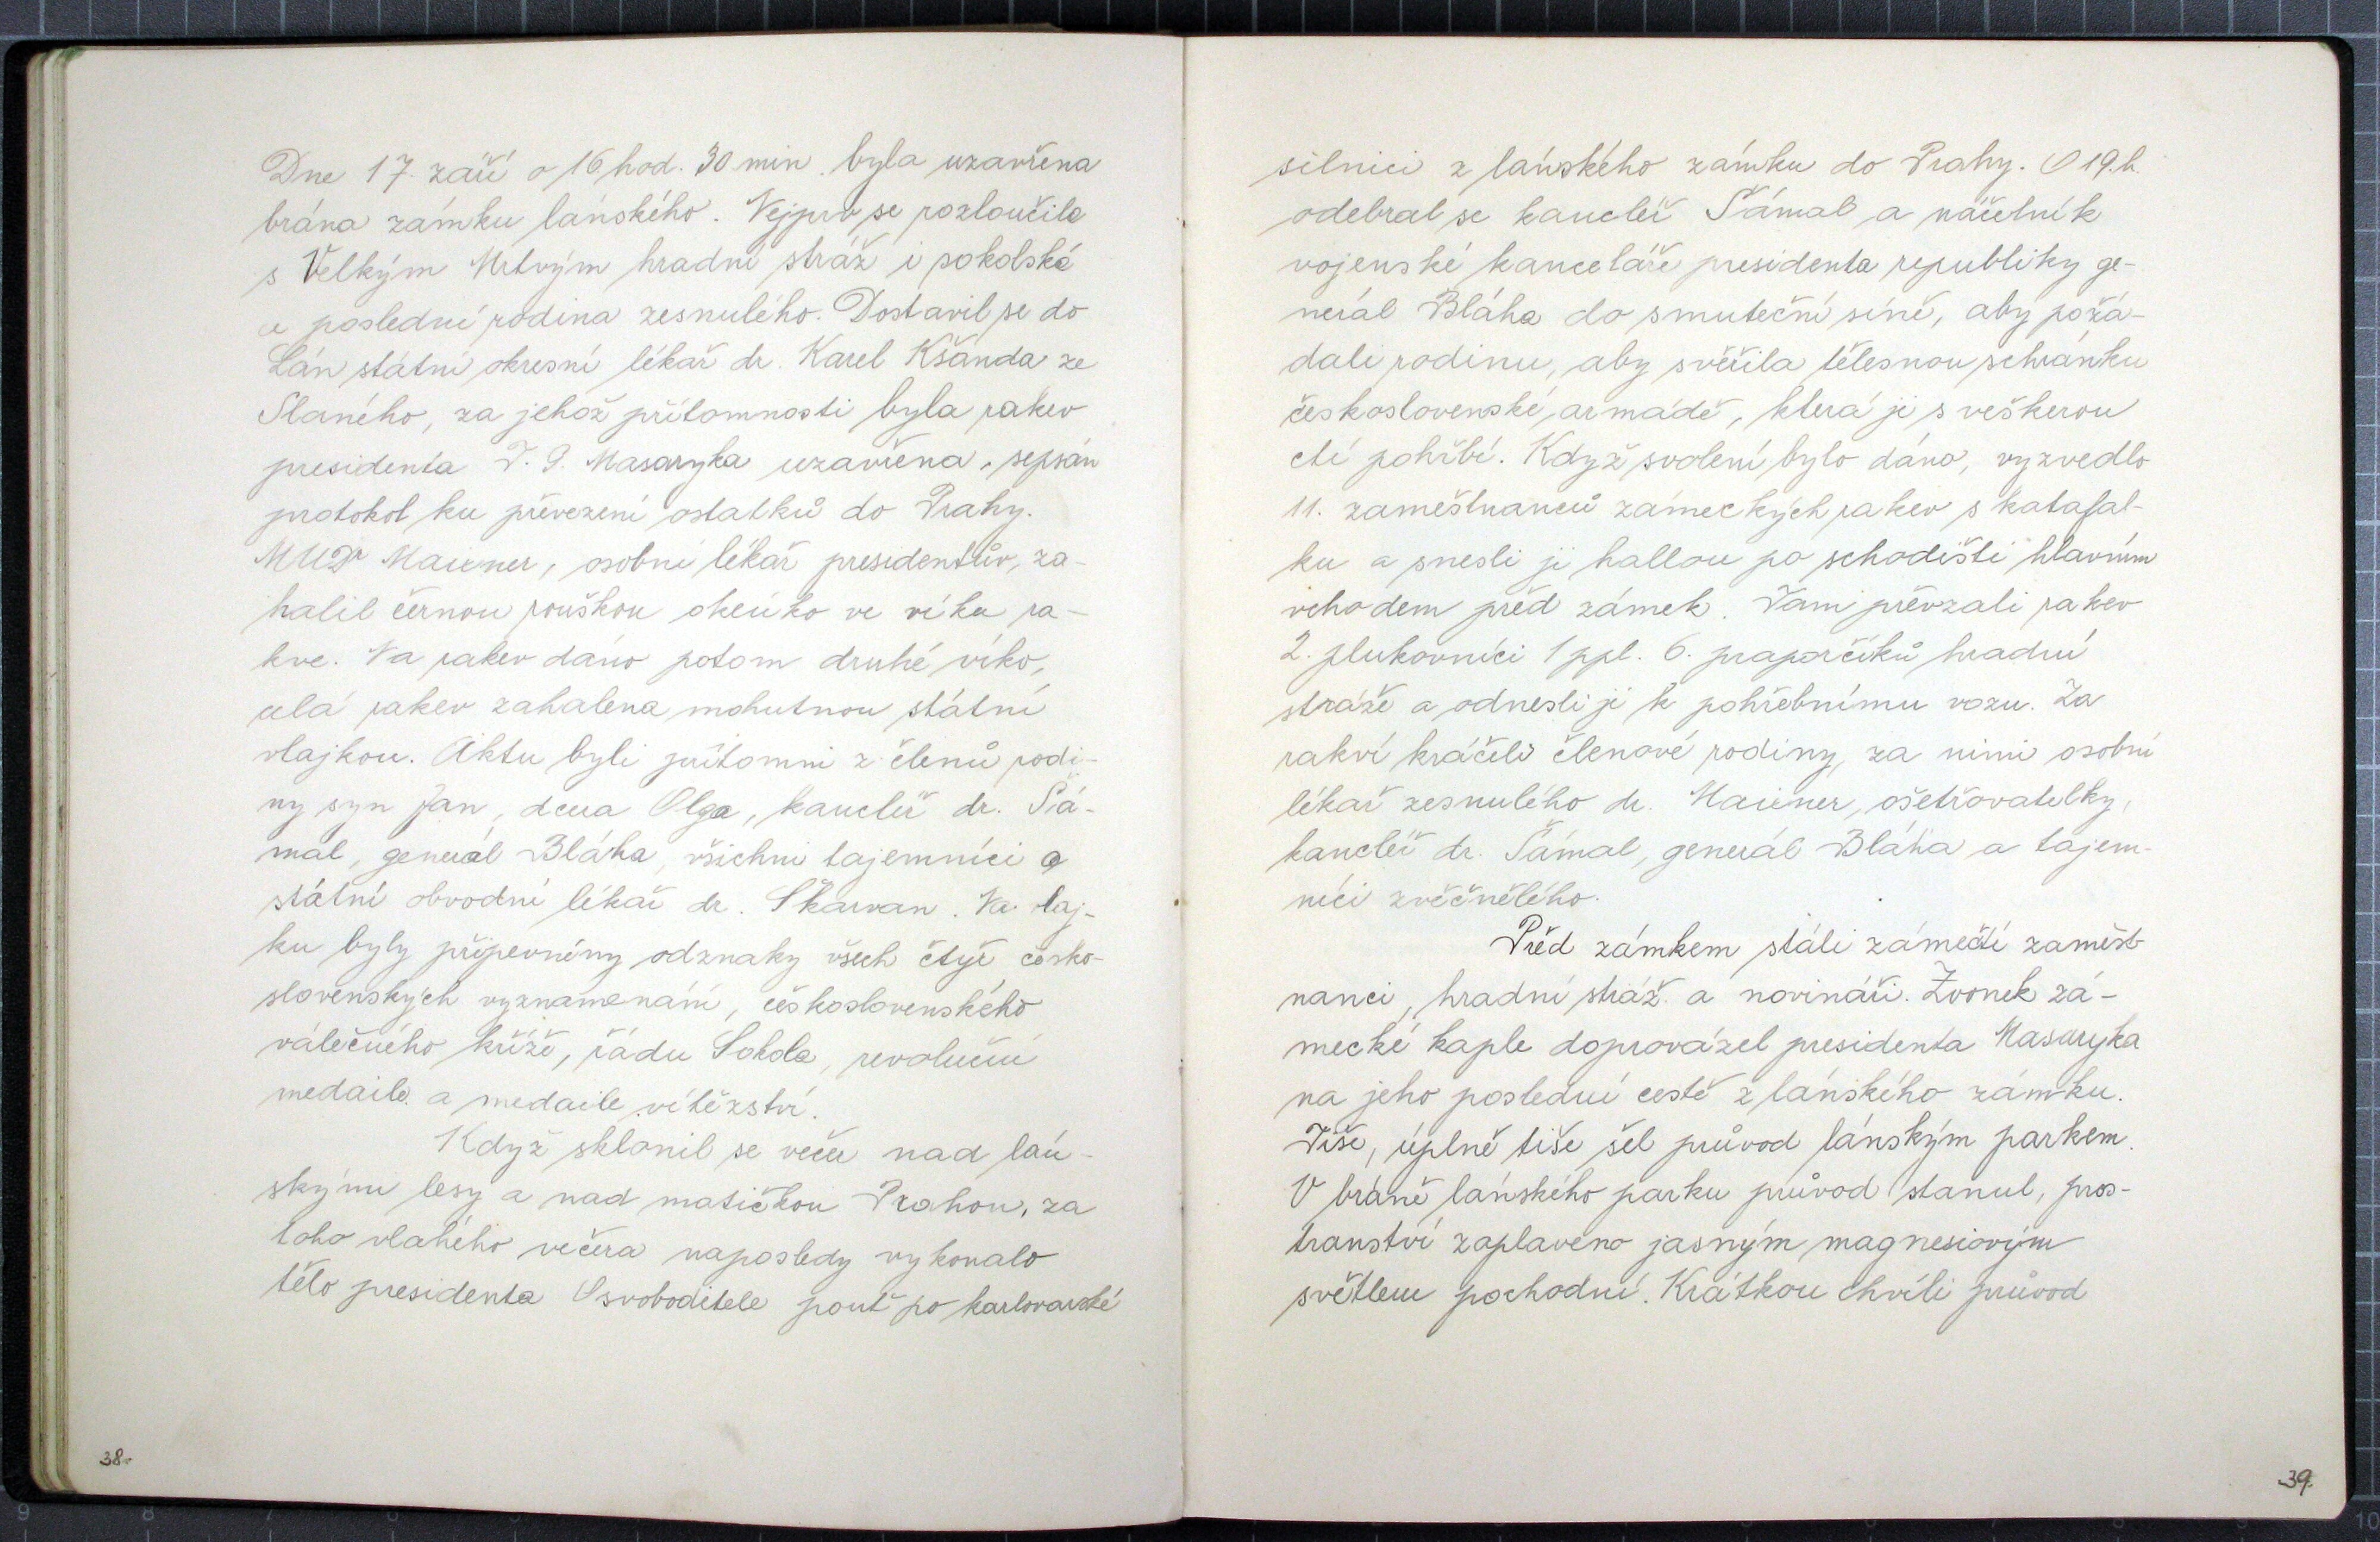 Dne 17. září o 16 hod. 30 min. byla uzavřena
brána zámku lánského. Nejprv se rozloučila
s Velkým Mrtvým hradní stráž i sokolská
a poslední rodina zesnulého. Dostavil se do
Lán státní okresní lékař dr. Karel Kšanda ze
Slaného, za jehož přítomnosti byla rakev
presidenta T. G. Masaryka uzavřena, sepsán
protokol ku převezení ostatků do Prahy.
MUDr Maixner, osobní lékař presidentův, za-
halil černou rouškou okénko ve víku ra-
kve. Na rakev dáno potom druhé víko,
celá rakev zahalena mohutnou státní
vlajkou. Aktu byli přítomni z členů rodi-
ny syn Jan, dcera Olga, kancléř dr. Šá-
mal, generál Bláha, všichni tajemníci a
státní obvodní lékař dr. Škarvan. Na vlaj-
ku byly připevněny odznaky všech čtyř česko-
slovenských vyznamenání, československého
válečného kříže, řádu Sokola, revoluční
medaile a medaile vítězství.
Když sklonil se večer nad lán-
skými lesy a nad matičkou Prahou, za
toho vlahého večera naposledy vykonalo
tělo presidenta Osvoboditele pouť po karlovarské
38.
silnici z lánského zámku do Prahy. O 19. h.
odebral se kancléř Šámal a náčelník
vojenské kanceláře presidenta republiky ge-
nerál Bláha do smuteční síně, aby požá-
dali rodinu, aby svěřila tělesnou schránku
československé armádě, která ji s veškerou
ctí pohřbí. Když svolení bylo dáno, vyzvedlo
11. zaměstnanců zámeckých rakev s katafal-
ku a snesli ji hallou po schodišti hlavním
vchodem před zámek. Tam převzali rakev
2. plukovníci 1 ppl. 6. praporčíků hradní
stráže a odnesli ji k pohřebnímu vozu. Za
rakví kráčeli členové rodiny, za nimi osobní
lékař zesnulého dr. Maixner, ošetřovatelky,
kancléř dr. Šámal, generál Bláha a tajem-
níci zvěčnělého.
Před zámkem stáli zámečtí zaměst-
nanci, hradní stráž a novináři. Zvonek zá-
mecké kaple doprovázel presidenta Masaryka
na jeho poslední cestě z lánského zámku.
Tiše, úplně tiše šel průvod lánským parkem.
V bráně lánského parku průvod stanul, pros-
tranství zaplaveno jasným magnesiovým
světlem pochodní. Krátkou chvíli průvod
39.